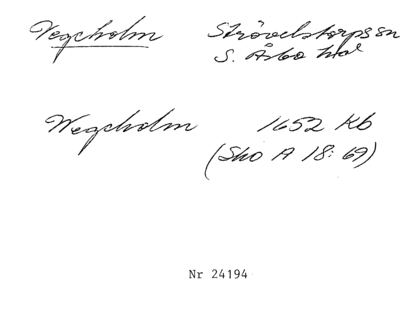 Vegeholm Strövelstorps sn
S. Åsbo hd
Wegeholm 1652 Kb
(Sko A 18: 69)
Nr 24194